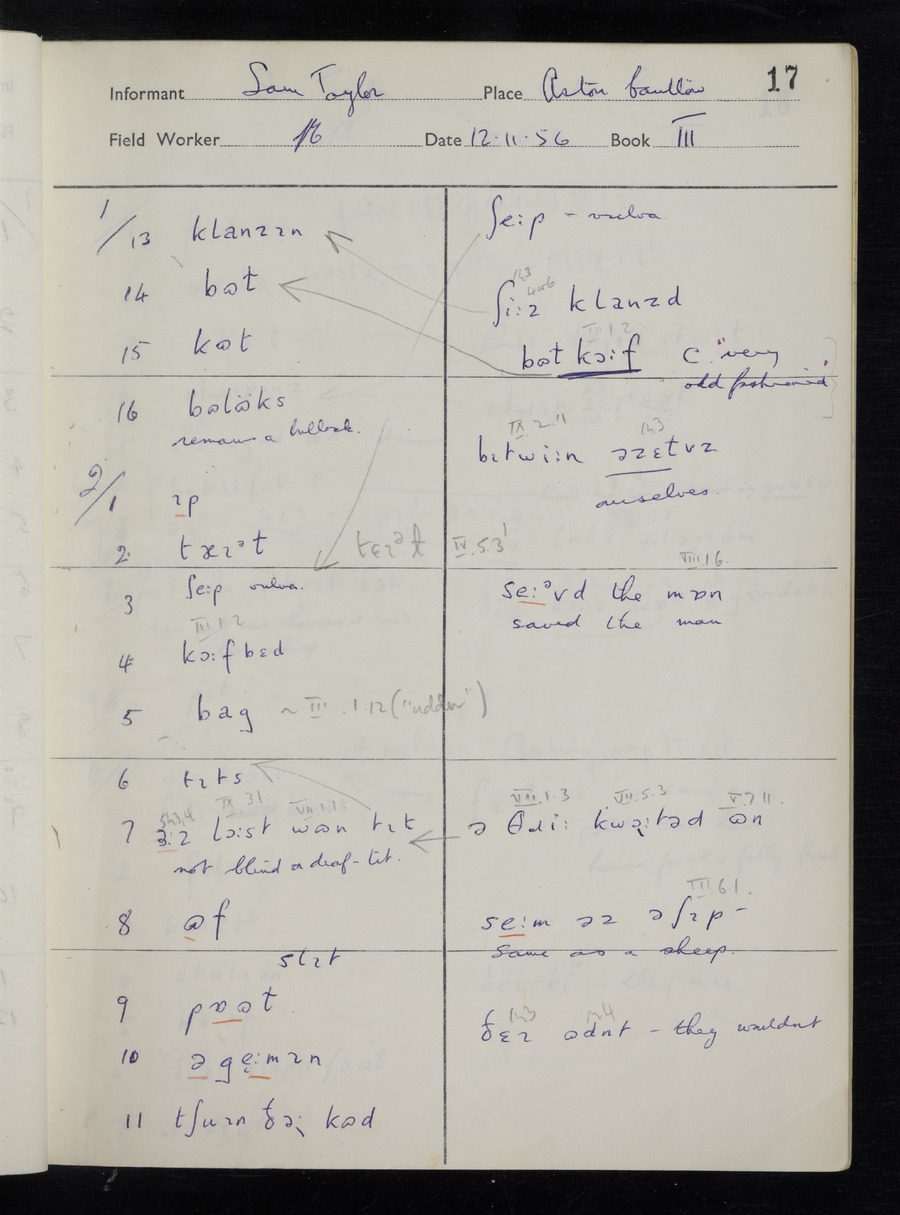 17
Informant Sam Taylor Place Aston Cantlow
Field Worker Date 12.11.56 Book III
1/13 klanzɪn
14 bɷt
15 kɷt
16 bɷlɷ̈ks
remains a bullock.
2/1 ɪp
2 tæɪᵊt tɛɪᵊt IV.5.3
3 ʃe:p vulva.
III.1.2
4 kɔ:f bɛd
5 bag ~ III.1.12 ("udder")
6 tɪts
IX 31 VII.1.1
7 ɜ:z lɔ:st wɒn tɪt
not blind or deaf-tit.
8 ɷf
slɪt
9 pɒɷt
10 ə ge:mɪn
11 tʃuɪn ðəɪ kɷd
ʃe:p - vulva
ʃi:z klanzd
III.1.2
bɷt kɔ:f C. "very
old fashioned"
IX 2.11
bɪtwi:n əzɛtvz
ourselves.
VIII.1.6.
se:ᵊvd the mɒn
saved the man
VII.1.3 VII.5.3 V.7.11
ə θɹi: kwɔ:təd ɷn
III.6.1.
se:m əz ə ʃɪp -
same as a sheep.
ðɛɪ ɷdnt - they wouldnt